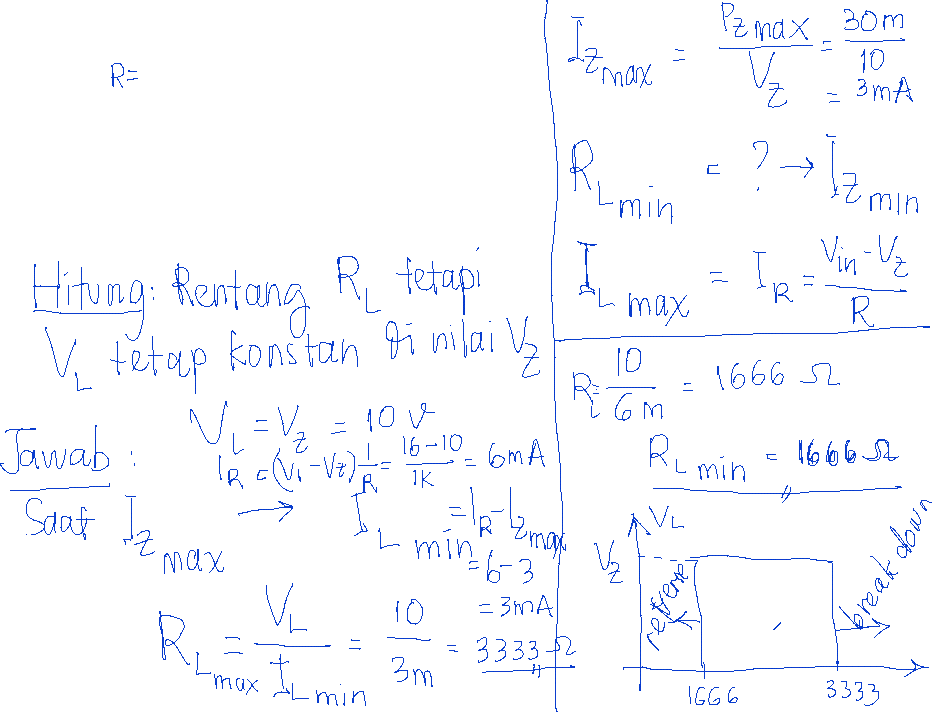 R=
Hitung: Rentang R_L tetapi
V_L tetap konstan di nilai V_Z
Jawab : V_L = V_Z = 10 V
I_R = (Vi - Vz) 1/R = 16-10/1K = 6mA
Saat I_Z max → I_L min = I_R - I_Z max
= 6-3
= 3mA
R_L max = V_L / I_L min = 10/3m = 3333 Ω
I_Z max = P_Z max / V_Z = 30m/10
= 3mA
R_L min = ? → I_Z min
I_L max = I_R = Vin - V_Z / R
R_L = 10/6m = 1666 Ω
R_L min = 1666 Ω
V_L
V_Z
reverse
break down
1666
3333